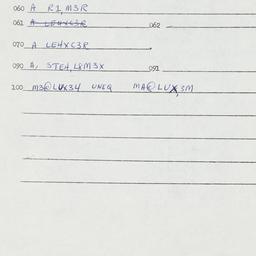 060 A R1, M3R
061 A LEHXC3R 062
070 A LEHXC3R
090 A, STEH, L8M3X 091
100 M3@LUX34 UNEQ MA@LUX, 3M